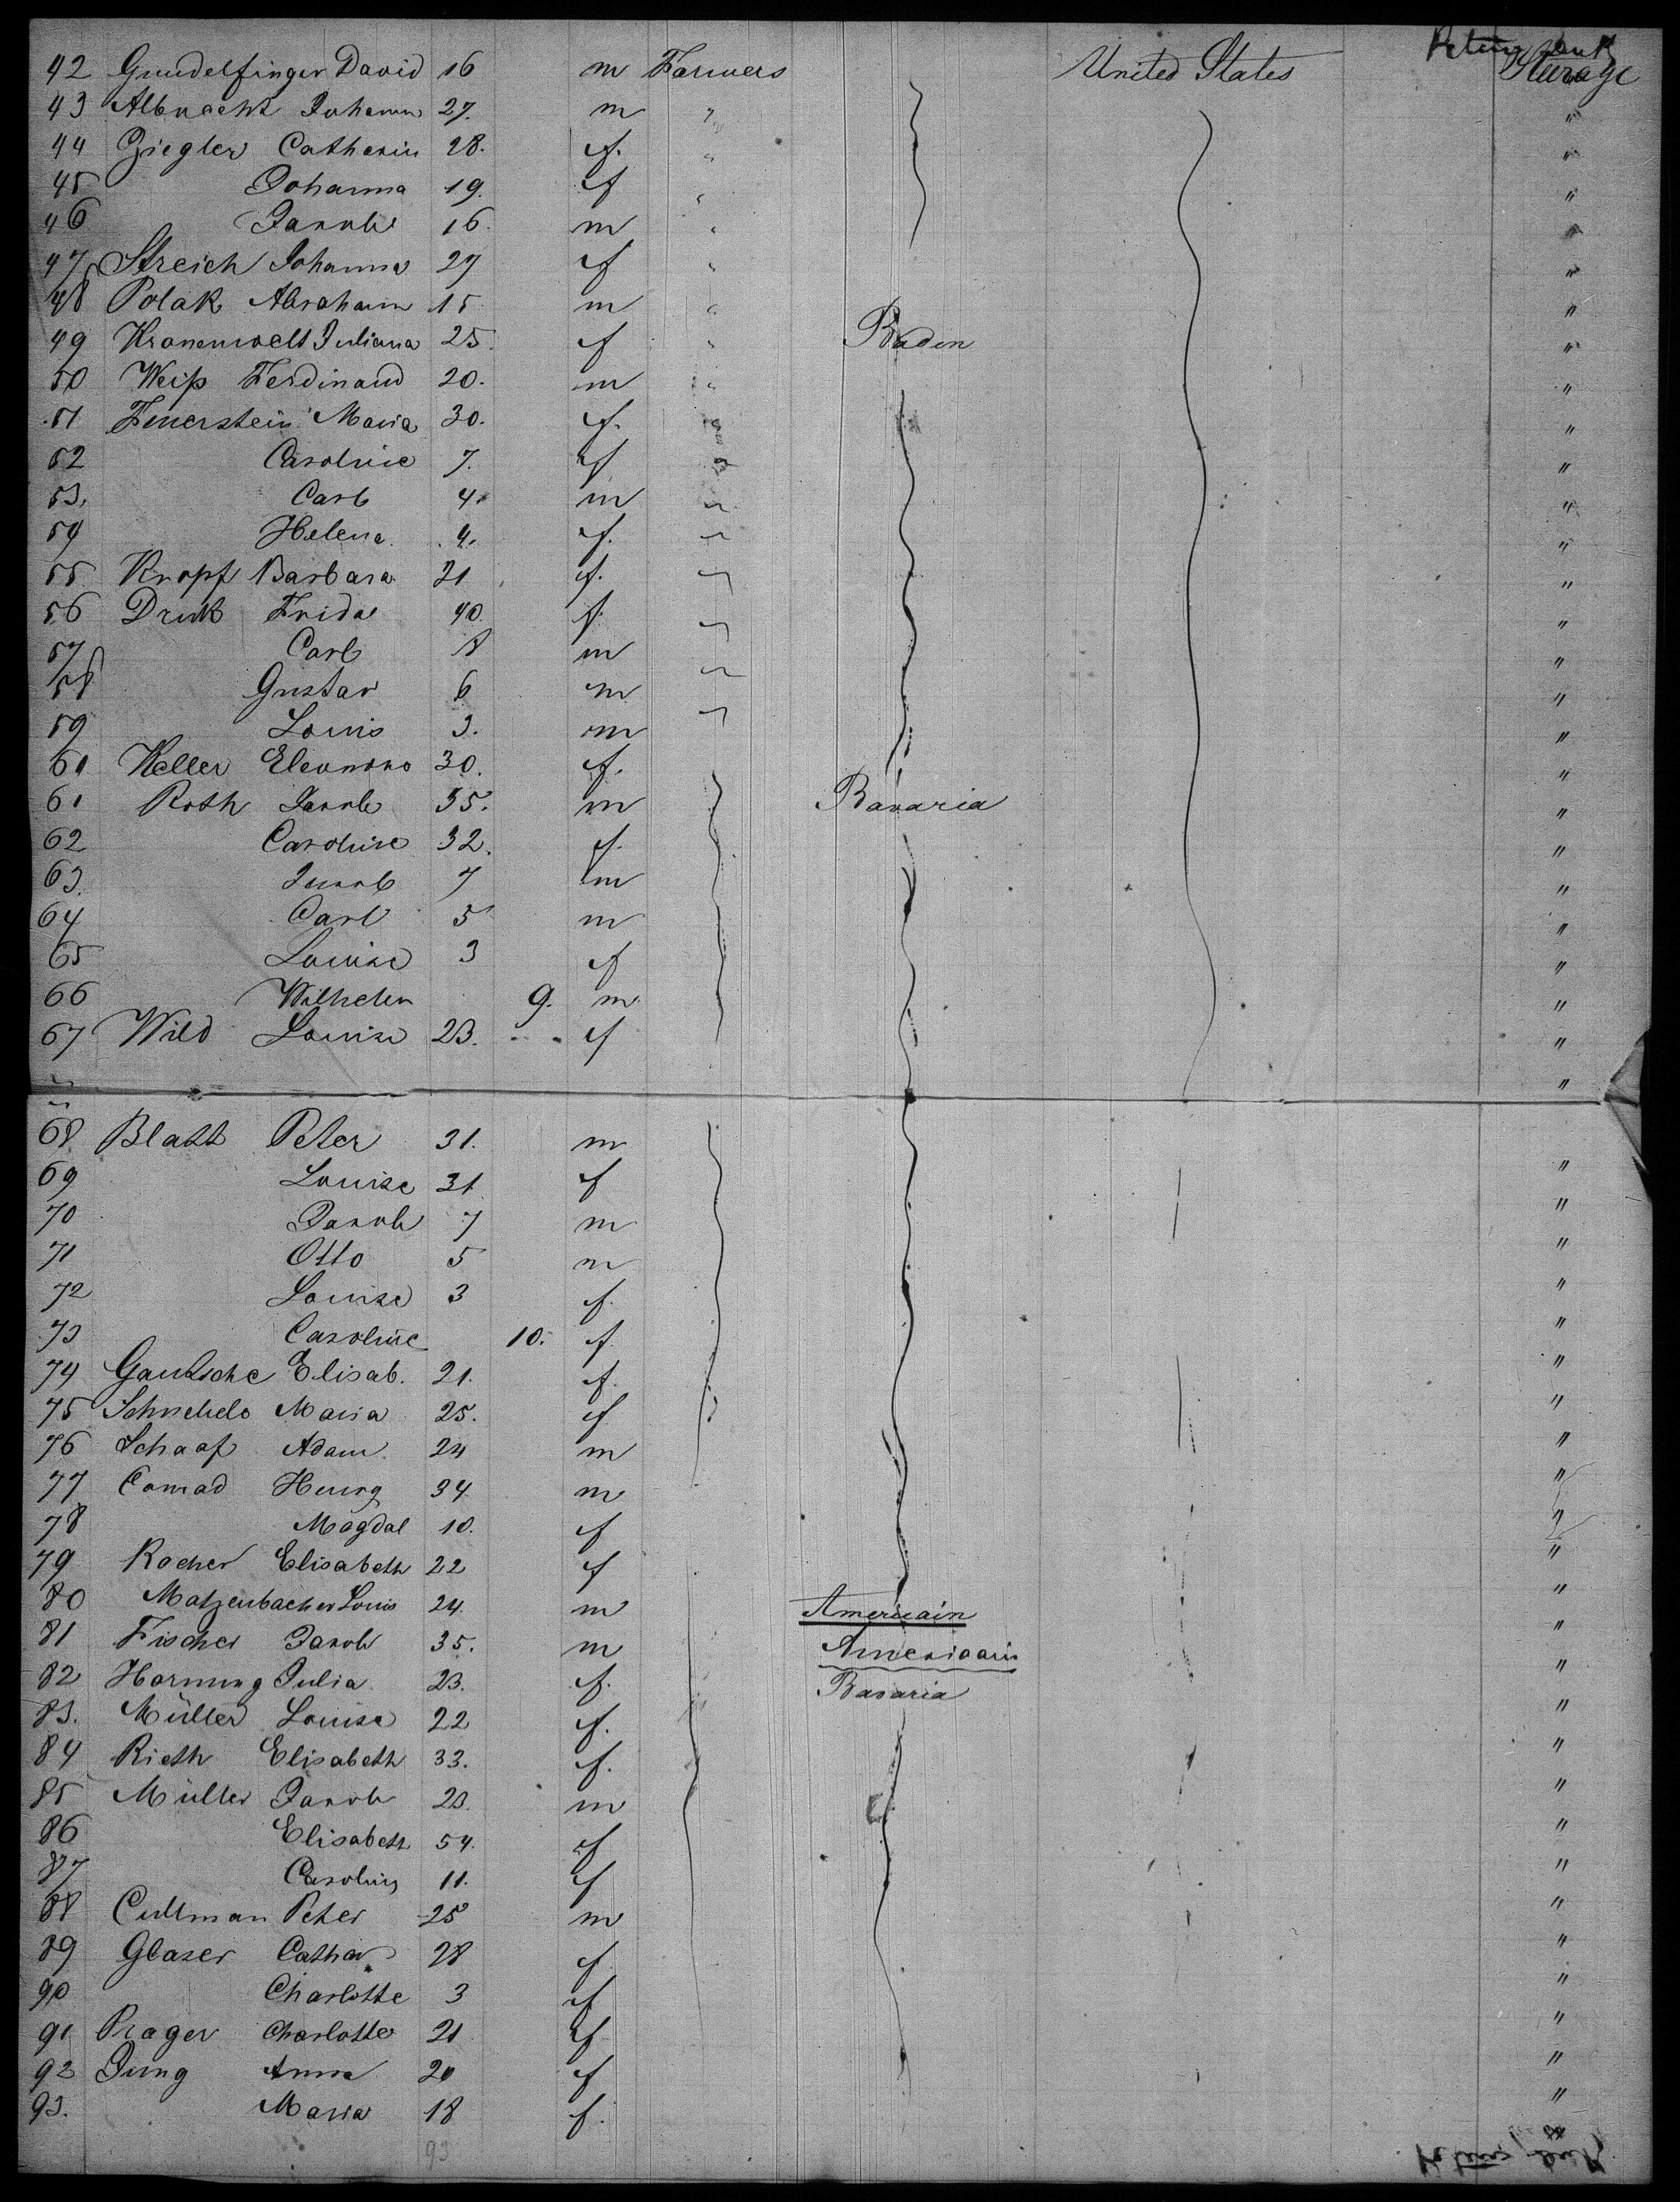 Steerage
42 Gundelfinger David 16 m Farmers United States
43 Albrecht Johann 27. m " "
44 Ziegler Catherin 28. f. " "
45 Johanna 19. f " "
46 Jakob 16 m " "
47 Streich Johanna 27 f " "
48 Polak Abraham 15 m " "
49 Kronenwelt Juliana 25. f " Baden "
50 Weiß Ferdinand 20. m " "
51 Feuerstein Maria 30. f. " "
52 Caroline 7. f " "
53. Carl 4. m " "
54 Helena 4. f. " "
55 Kropf Barbara 21 f. " "
56 Druk Frida 40. f. " "
57 Carl 8 m " "
58 Gustav 6 m " "
59 Louis 3. m " "
60 Keller Eleonore 30. f. "
61 Roth Jakob 35. m Bavaria "
62 Caroline 32. f. "
63. Jakob 7 m "
64 Carl 5 m "
65 Louise 3 f "
66 Wilhelm 9. m "
67 Wild Louise 23. f "
"
68 Blatt Peter 31. m
69 Louise 31 f "
70 Jakob 7 m "
71 Otto 5 m "
72 Louise 3 f. "
73 Caroline 10. f "
74 Gautsche Elisab. 21. f. "
75 Maria 25. f "
76 Schaaf Adam 24 m "
77 Conrad 34 m "
78 Magdal 10. f "
79 Kocher Elisabeth 22 f "
80 Matzenbacher Louis 24. m Americain "
81 Fischer Jakob 35. m Americain "
82 Hornung Julia 23. f. Bavaria "
83. Müller Louise 22 f. "
84 Rieth Elisabeth 33. f. "
85 Müller Jakob 23. m "
86 Elisabeth 54. f "
87 Carolin 11. f "
88 Cullman Peter 25 m "
89 Glaser Cathar 28 f "
90 Charlotte 3 f "
91 Prager Charlotte 21 f "
92 Jung Anna 20 f "
93. Maria 18 f. "
93